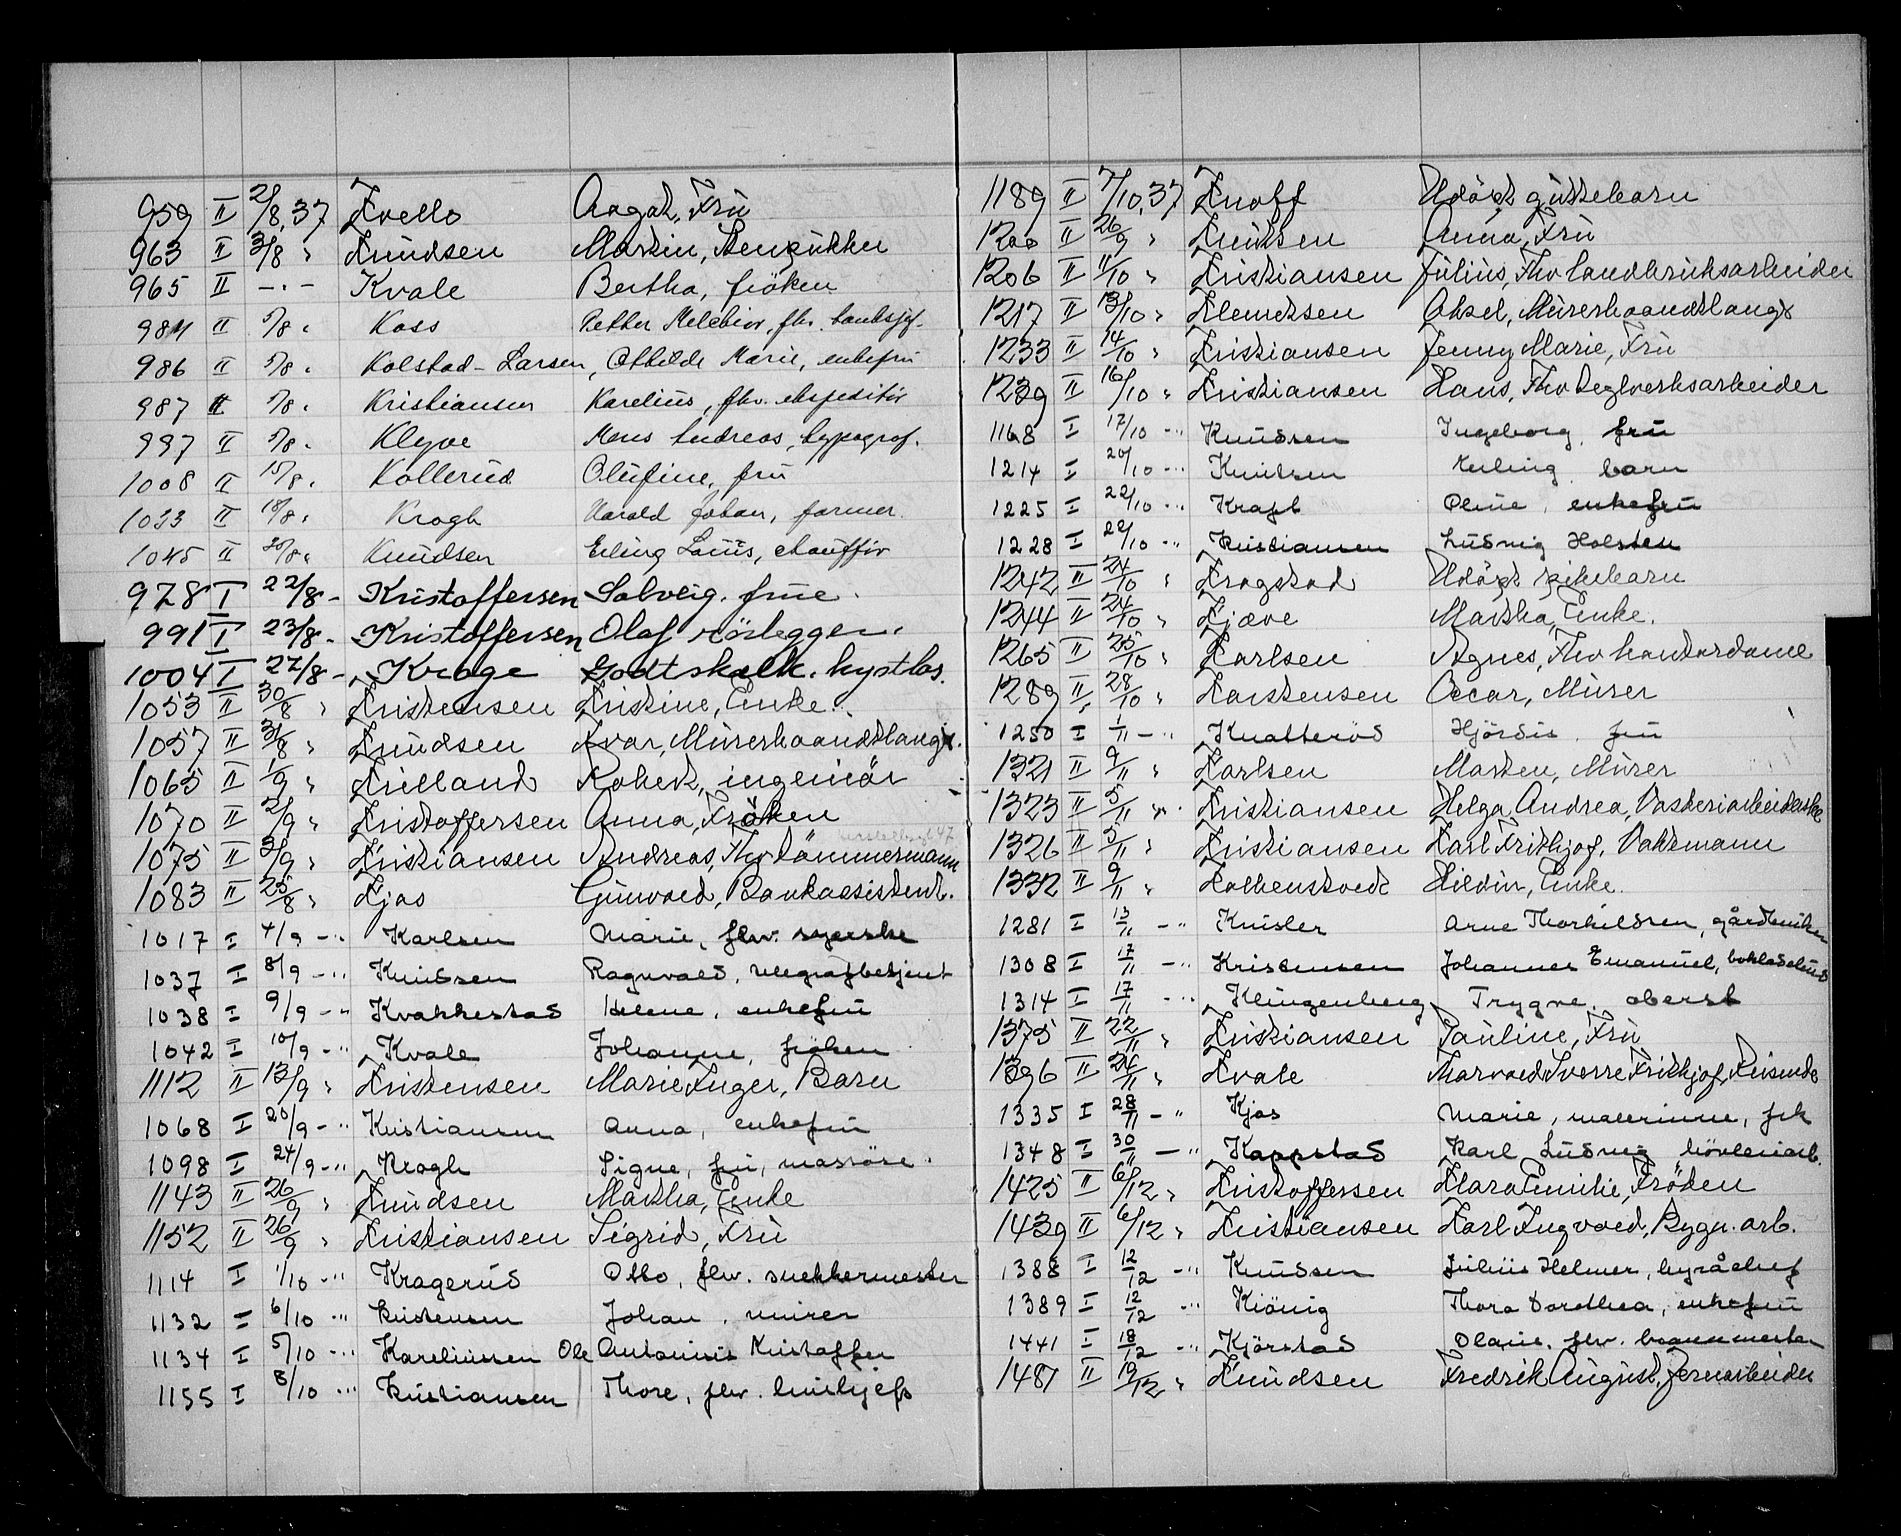 959 II 2/8.37 Kvello Aagot, Frü
963 II 3/8 " Knudsen Martin, Stenpukker
965 II -"- Kvale Bertha, fröken
984 II 5/8 " Koss Petter Melchior, fhv. banksjef.
986 II 5/8 " Kolstad-Larsen, Othilde Marie, enkefru
987 II 5/8 " Kristiansen Karelius, fhv. ekspeditör
997 II 5/8 " Klyve Mons Andreas, typograf.
1008 II 15/8 " Kollerud Olufine, fru
1033 II 18/8 " Krogh Harald Johan, former.
1045 II 20/8 " Knudsen Erling Louis, chaufför
978 I 22/8 - Kristoffersen Solveig. frue.
991 I 23/8 - Kristoffersen Olaf rörlegger.
1004 I 27/8 - Krage Godtskalk. kystlos.
1053 II 30/8 " Kristensen Kristine, Enke.
1057 II 31/8 " Knudsen Ivar, Murerhaandtlangr.
1065 II 1/9 " Kielland Robert, ingeniör
1070 II 2/9 " Kristoffersen Anna, Fröken
1075 II 3/9 " Kristiansen Andreas, Fhv tömmermann
1083 II 25/8 " Kjos Gunvald, Bankassistent.
1017 I 4/9 -"- Karlsen Marie, fhv. syerske
1037 I 8/9 -"- Knudsen Ragnvald, telegrafbetjent
1038 I 9/9 -"- Kvakkestad Helene, enkefru
1042 I 10/9 -"- Kvale Johanne, fröken
1112 II 13/9 " Kristensen Marie Inger, Barn
1068 I 20/9 -"- Kristiansen Anna, enkefru
1098 I 24/9 -"- Krogh Signe, fru, massöse.
1143 II 26/9 " Knudsen Martha, Enke
1152 II 26/9 " Kristiansen Sigrid, Frü
1114 I 1/10 -"- Kragerud Otto, fhv. snekkermester
1132 I 6/10 -"- Kristensen Johan, murer
1134 I 5/10 -"- Kareliussen Ole Antonius Kristoffer
1155 I 8/10 -"- Kristiansen Thore, fhv.
1189 II 7/10.37 Knoff Udöpt guttebarn
1200 II 26/9 " Knutsen Anna, Frü
1206 II 11/10 " Kristiansen Julius, Fhv landbruksarbeider
1217 II 13/10 " Klemetsen Aksel, Murerhaandtlangr
1233 II 14/10 " Kristiansen Jenny Marie, Frü
1239 II 16/10 " Kristiansen Hans, Fhv Teglverksarbeider
1168 I 17/10 -"- Knudsen Ingeborg, fru
1214 I 20/10 -"- Knutsen barn
1225 I 22/10 -"- Kraft Oline, enkefru
1228 I 22/10 -"- Kristiansen Ludvig Holsten
1242 II 24/10 " Krogstad Udöpt pikebarn
1244 II 24/10 " Kjæve Martha, Enke.
1265 II 25/10 " Karlsen Agnes, Fhv kontordame
1289 II 28/10 " Karstensen Oscar, Murer
1250 I 1/11 -"- Knatteröd Hjördis, fru
1321 II 9/11 " Karlsen Marten, Murer
1323 II 5/11 " Kristiansen Helga Andrea, Vaskeriarbeiderske
1326 II 5/11 " Kristiansen Karl Frithjof, Vaktmann
1332 II 9/11 " Kolkenstvedt Hildur, Enke.
1281 I 13/11 -"- Knisler Arne Thorkildsen, gårdbruker
1308 I 17/11 -"- Kristensen Johannes Emanuel,
1314 I 17/11 -"- Klingenberg Trygve, oberst
1375 II 22/11 " Kristiansen Pauline, Frü
1396 II 24/11 " Kvale Tharvald Sverre Frithjof, Reisende
1335 I 28/11 -"- Kjos Marie, malerinne, frk
1348 I 30/11 -"- Kappstad Karl Ludvig hövleriarb.
1425 II 6/12 " Kristoffersen Klara Emilie, Fröken
1439 II 6/12 " Kristiansen Karl Ingvald, Bygn. arb.
1388 I 12/12 -"- Knudsen Julius Helmer, byråchef
1389 I 12/12 -"- Kiönig Thora Dorothea, enkefru
1441 I 18/12 -"- Kjörstad Olaus, fhv. banemester
1487 II 19/12 " Knudsen Fredrik August, Jernarbeider